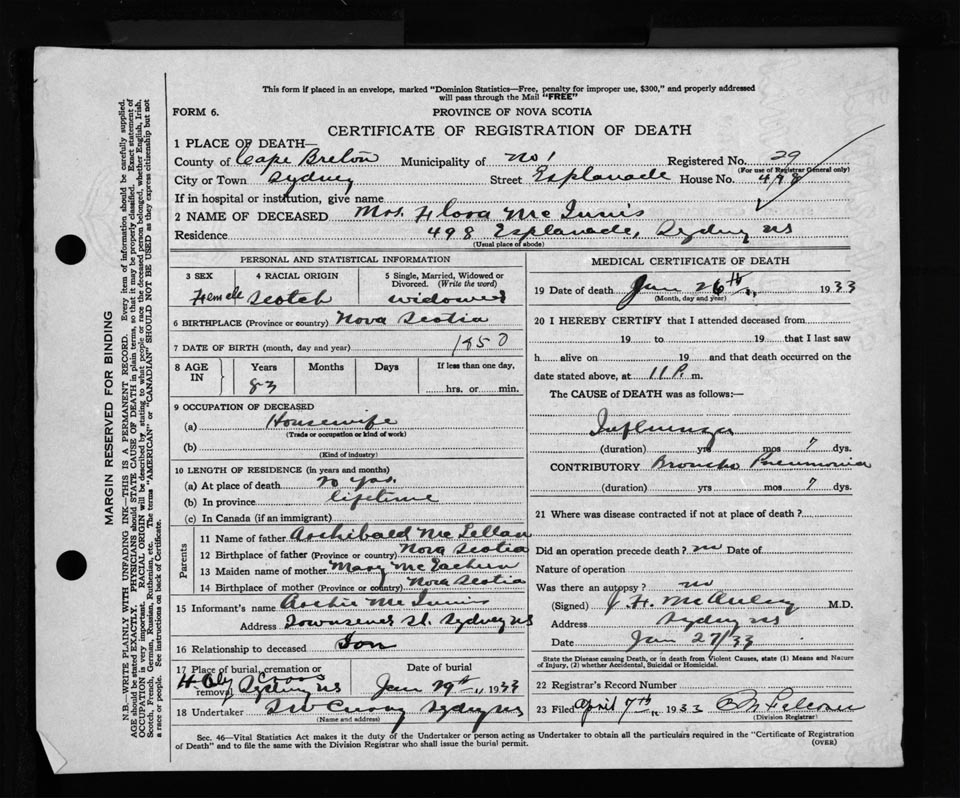 This form if placed in an envelope, marked "Dominion Statistics—Free, penalty for improper use, $300," and properly addressed
will pass through the Mail "FREE"
FORM 6. PROVINCE OF NOVA SCOTIA
CERTIFICATE OF REGISTRATION OF DEATH
1 PLACE OF DEATH—
County of Cape Breton Municipality of No 1 Registered No. 29
(For use of Registrar General only)
City or Town Sydney Street Esplanade House No. 498
If in hospital or institution, give name
2 NAME OF DECEASED Mrs. Flora McInnis
Residence 498 Esplanade, Sydney NS
(Usual place of abode)
PERSONAL AND STATISTICAL INFORMATION
3 SEX 4 RACIAL ORIGIN 5 Single, Married, Widowed or
Divorced. (Write the word)
Female Scotch widowed
6 BIRTHPLACE (Province or country) Nova Scotia
7 DATE OF BIRTH (month, day and year) 1850
8 AGE IN Years Months Days If less than one day,
83 hrs. or min.
9 OCCUPATION OF DECEASED
(a) Housewife
(Trade or occupation or kind of work)
(b)
(Kind of industry)
10 LENGTH OF RESIDENCE (in years and months)
(a) At place of death yrs.
(b) In province lifetime
(c) In Canada (if an immigrant)
Parents
11 Name of father Archibald McLellan
12 Birthplace of father (Province or country) Nova Scotia
13 Maiden name of mother Mary McEachern
14 Birthplace of mother (Province or country) Nova Scotia
15 Informant's name Archie McInnis
Address Townsend St. Sydney NS
16 Relationship to deceased Son
17 Place of burial, cremation or
removal Holy Cross Sydney NS
Date of burial
Jan 29th 1933
18 Undertaker Curry Sydney NS
(Name and address)
MEDICAL CERTIFICATE OF DEATH
19 Date of death Jan 26th 1933
(Month, day and year)
20 I HEREBY CERTIFY that I attended deceased from
19 to 19 that I last saw
h alive on 19 and that death occurred on the
date stated above, at 11 P. m.
The CAUSE of DEATH was as follows:—
Influenza
(duration) yrs mos 7 dys.
CONTRIBUTORY Broncho Pneumonia
(duration) yrs mos 7 dys.
21 Where was disease contracted if not at place of death?
Did an operation precede death? no Date of
Nature of operation
Was there an autopsy? no
(Signed) J. H. McAuley M.D.
Address Sydney NS
Date Jan 27/33
State the Disease causing Death, or in death from Violent Causes, state (1) Means and Nature
of Injury, (2) whether Accidental, Suicidal or Homicidal.
22 Registrar's Record Number
23 Filed April 7th 1933
(Division Registrar)
Sec. 46—Vital Statistics Act makes it the duty of the Undertaker or person acting as Undertaker to obtain all the particulars required in the "Certificate of Registration
of Death" and to file the same with the Division Registrar who shall issue the burial permit. (OVER)
MARGIN RESERVED FOR BINDING
N.B.—WRITE PLAINLY WITH UNFADING INK—THIS IS A PERMANENT RECORD. Every item of information should be carefully supplied.
AGE should be stated EXACTLY. PHYSICIANS should STATE CAUSE OF DEATH in plain terms, so that it may be properly classified. Exact statement of
OCCUPATION is very important. RACIAL ORIGIN will be described by stating to what people or race the deceased person belonged, whether English, Irish,
Scotch, French, German, Russian, Ruthenian, etc. The terms "AMERICAN" or "CANADIAN" SHOULD NOT BE USED as they express citizenship but not
a race or people. See instructions on back of Certificate.